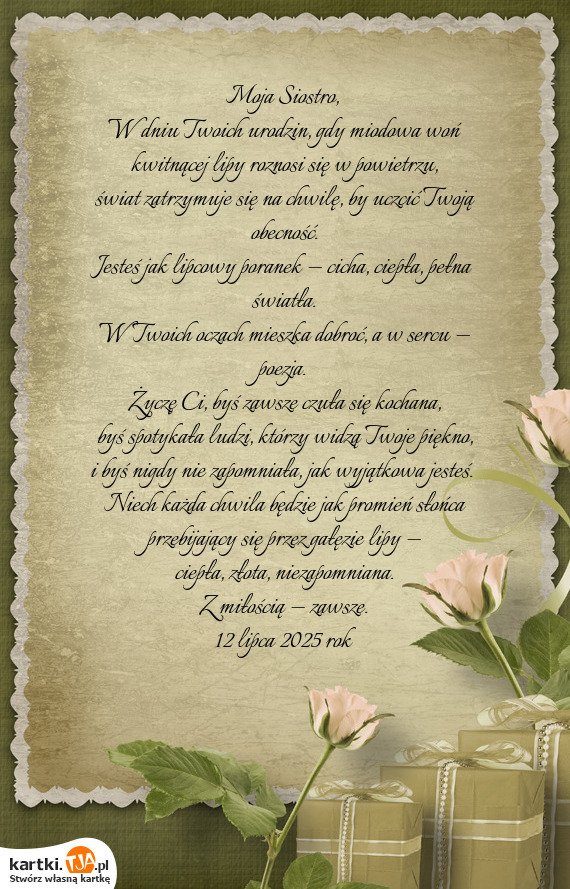 Moja Siostro,
W dniu Twoich urodzin, gdy miodowa woń
kwitnącej lipy roznosi się w powietrzu,
świat zatrzymuje się na chwilę, by uczcić Twoją
obecność.
Jesteś jak lipcowy poranek — cicha, ciepła, pełna
światła.
W Twoich oczach mieszka dobroć, a w sercu —
poezja.
Życzę Ci, byś zawsze czuła się kochana,
byś spotykała ludzi, którzy widzą Twoje piękno,
i byś nigdy nie zapomniała, jak wyjątkowa jesteś.
Niech każda chwila będzie jak promień słońca
przebijający się przez gałęzie lipy —
ciepła, złota, niezapomniana.
Z miłością — zawsze.
12 lipca 2025 rok
kartki.TJA.pl
Stwórz własną kartkę